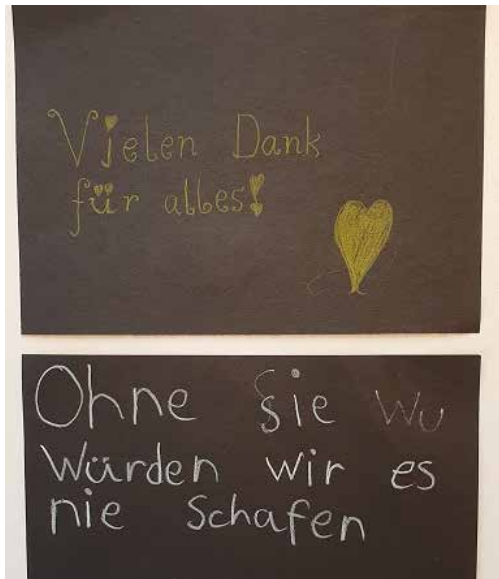 Vielen Dank
für alles!
Ohne Sie Wu
Würden wir es
nie Schafen